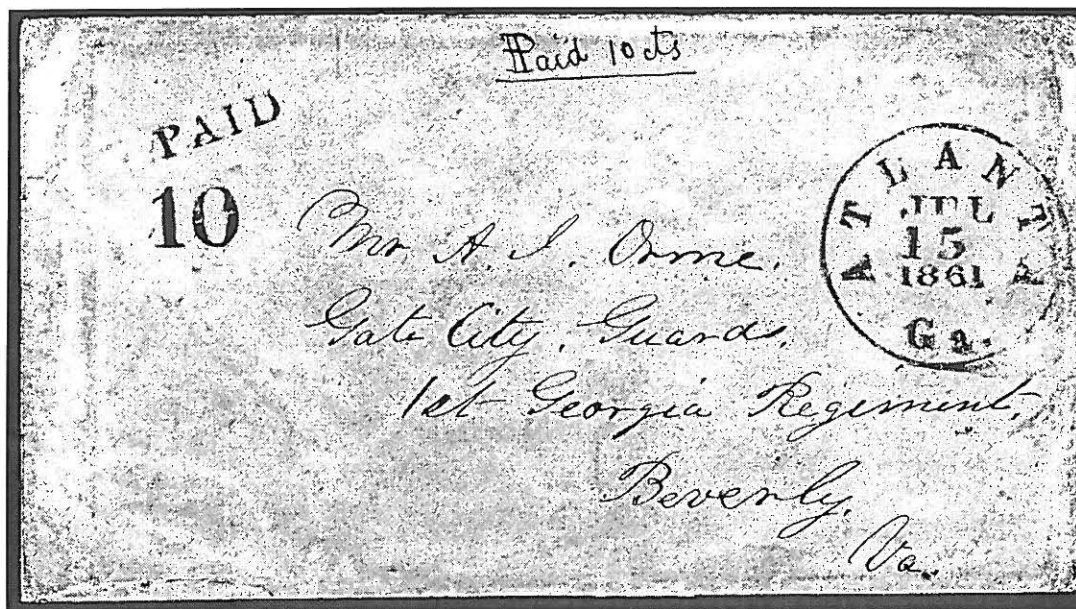 Paid 10 cts
PAID
10
ATLANTA
JUL
15
1861
Ga.
Mr. A. J. Orme.
Gate City, Guard.
1st Georgia Regiment,
Beverly,
Va.